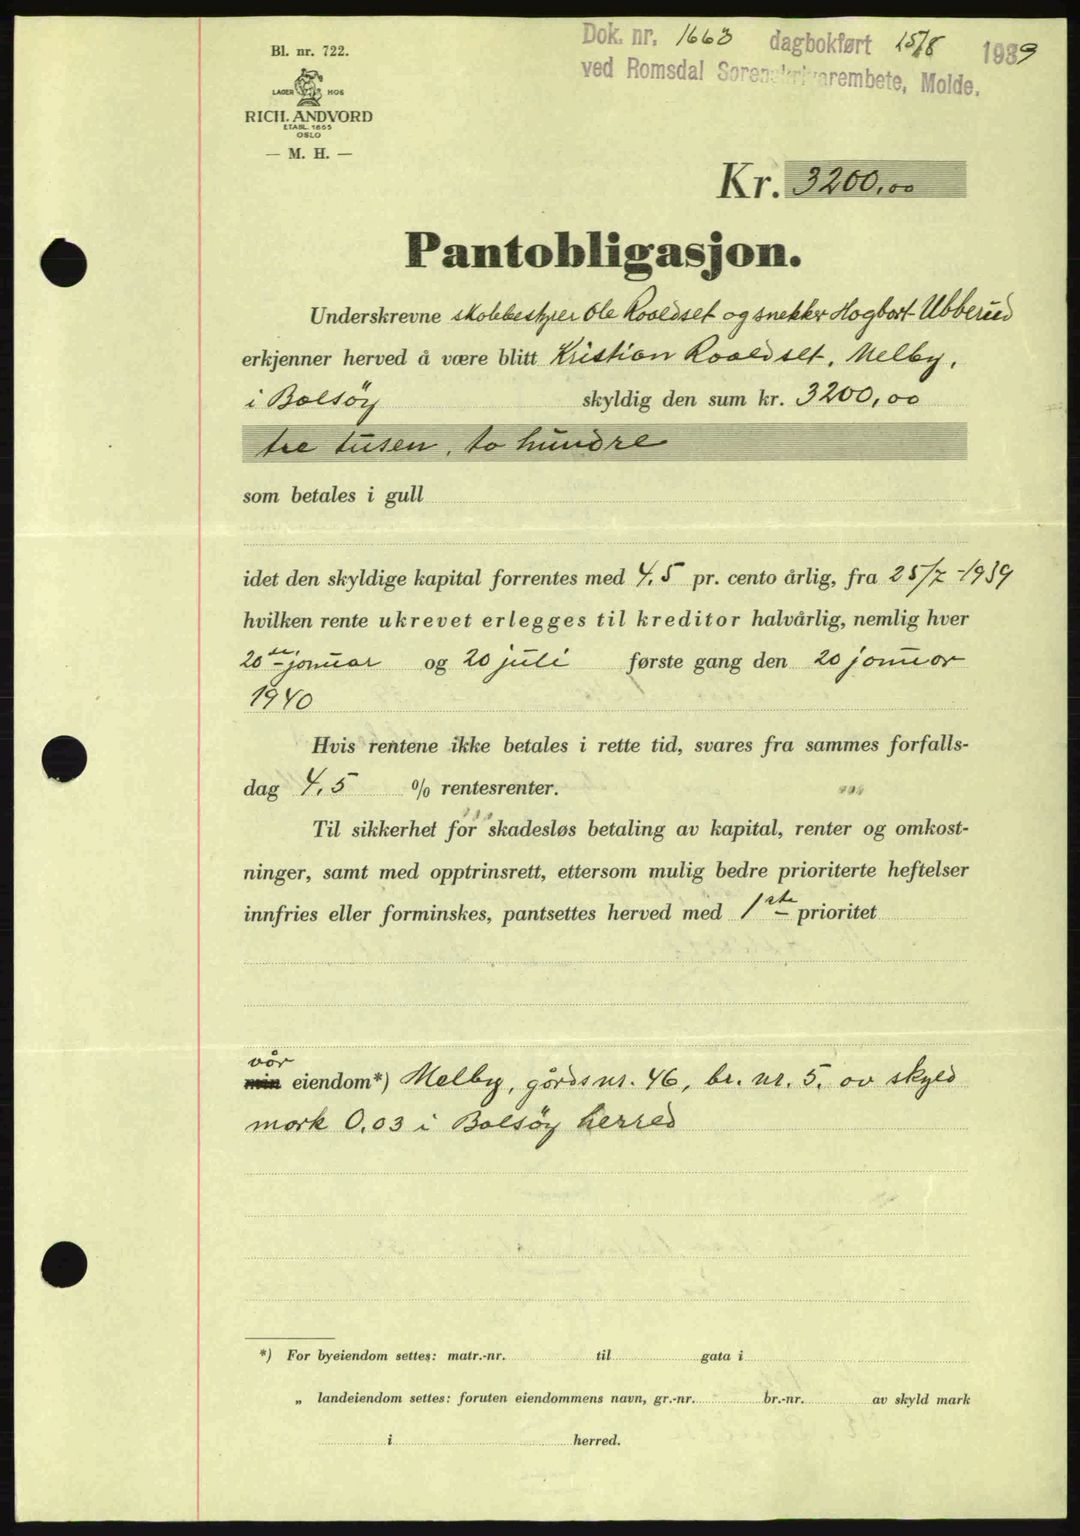 Dok. nr. 1663 dagbokført 25/8 1939
ved Romsdal Sorenskrivarembete, Molde.
Bl. nr. 722.
LAGER HOS
RICH. ANDVORD
ETABL. 1865
OSLO
— M. H. —
Kr. 3200,00
Pantobligasjon.
Underskrevne Ole Roaldset og snekker Hagbart Ubberud
erkjenner herved å være blitt Kristian Roaldset, Melby,
i Bolsøy skyldig den sum kr. 3200,00
tre tusen, to hundre
som betales i gull
idet den skyldige kapital forrentes med 4,5 pr. cento årlig, fra 25/7-1939
hvilken rente ukrevet erlegges til kreditor halvårlig, nemlig hver
20de januar og 20 juli første gang den 20 januar
1940
Hvis rentene ikke betales i rette tid, svares fra sammes forfalls-
dag 4,5 % rentesrenter.
Til sikkerhet for skadesløs betaling av kapital, renter og omkost-
ninger, samt med opptrinsrett, ettersom mulig bedre prioriterte heftelser
innfries eller forminskes, pantsettes herved med 1ste prioritet
vår
min eiendom*) Melby, gårdsnr. 46, br. nr. 5. av skyld
mark 0,03 i Bolsøy herred
*) For byeiendom settes: matr.-nr. til gata i
„ landeiendom settes: foruten eiendommens navn, gr.-nr. br.-nr. av skyld mark
i herred.